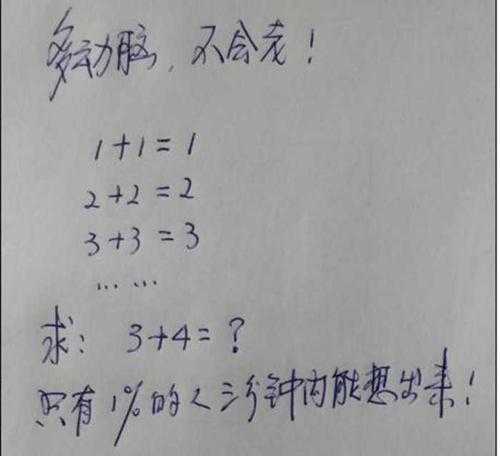 多动脑，不会老！
1+1=1
2+2=2
3+3=3
……
求：3+4=？
只有1%的人三分钟内能想出来！